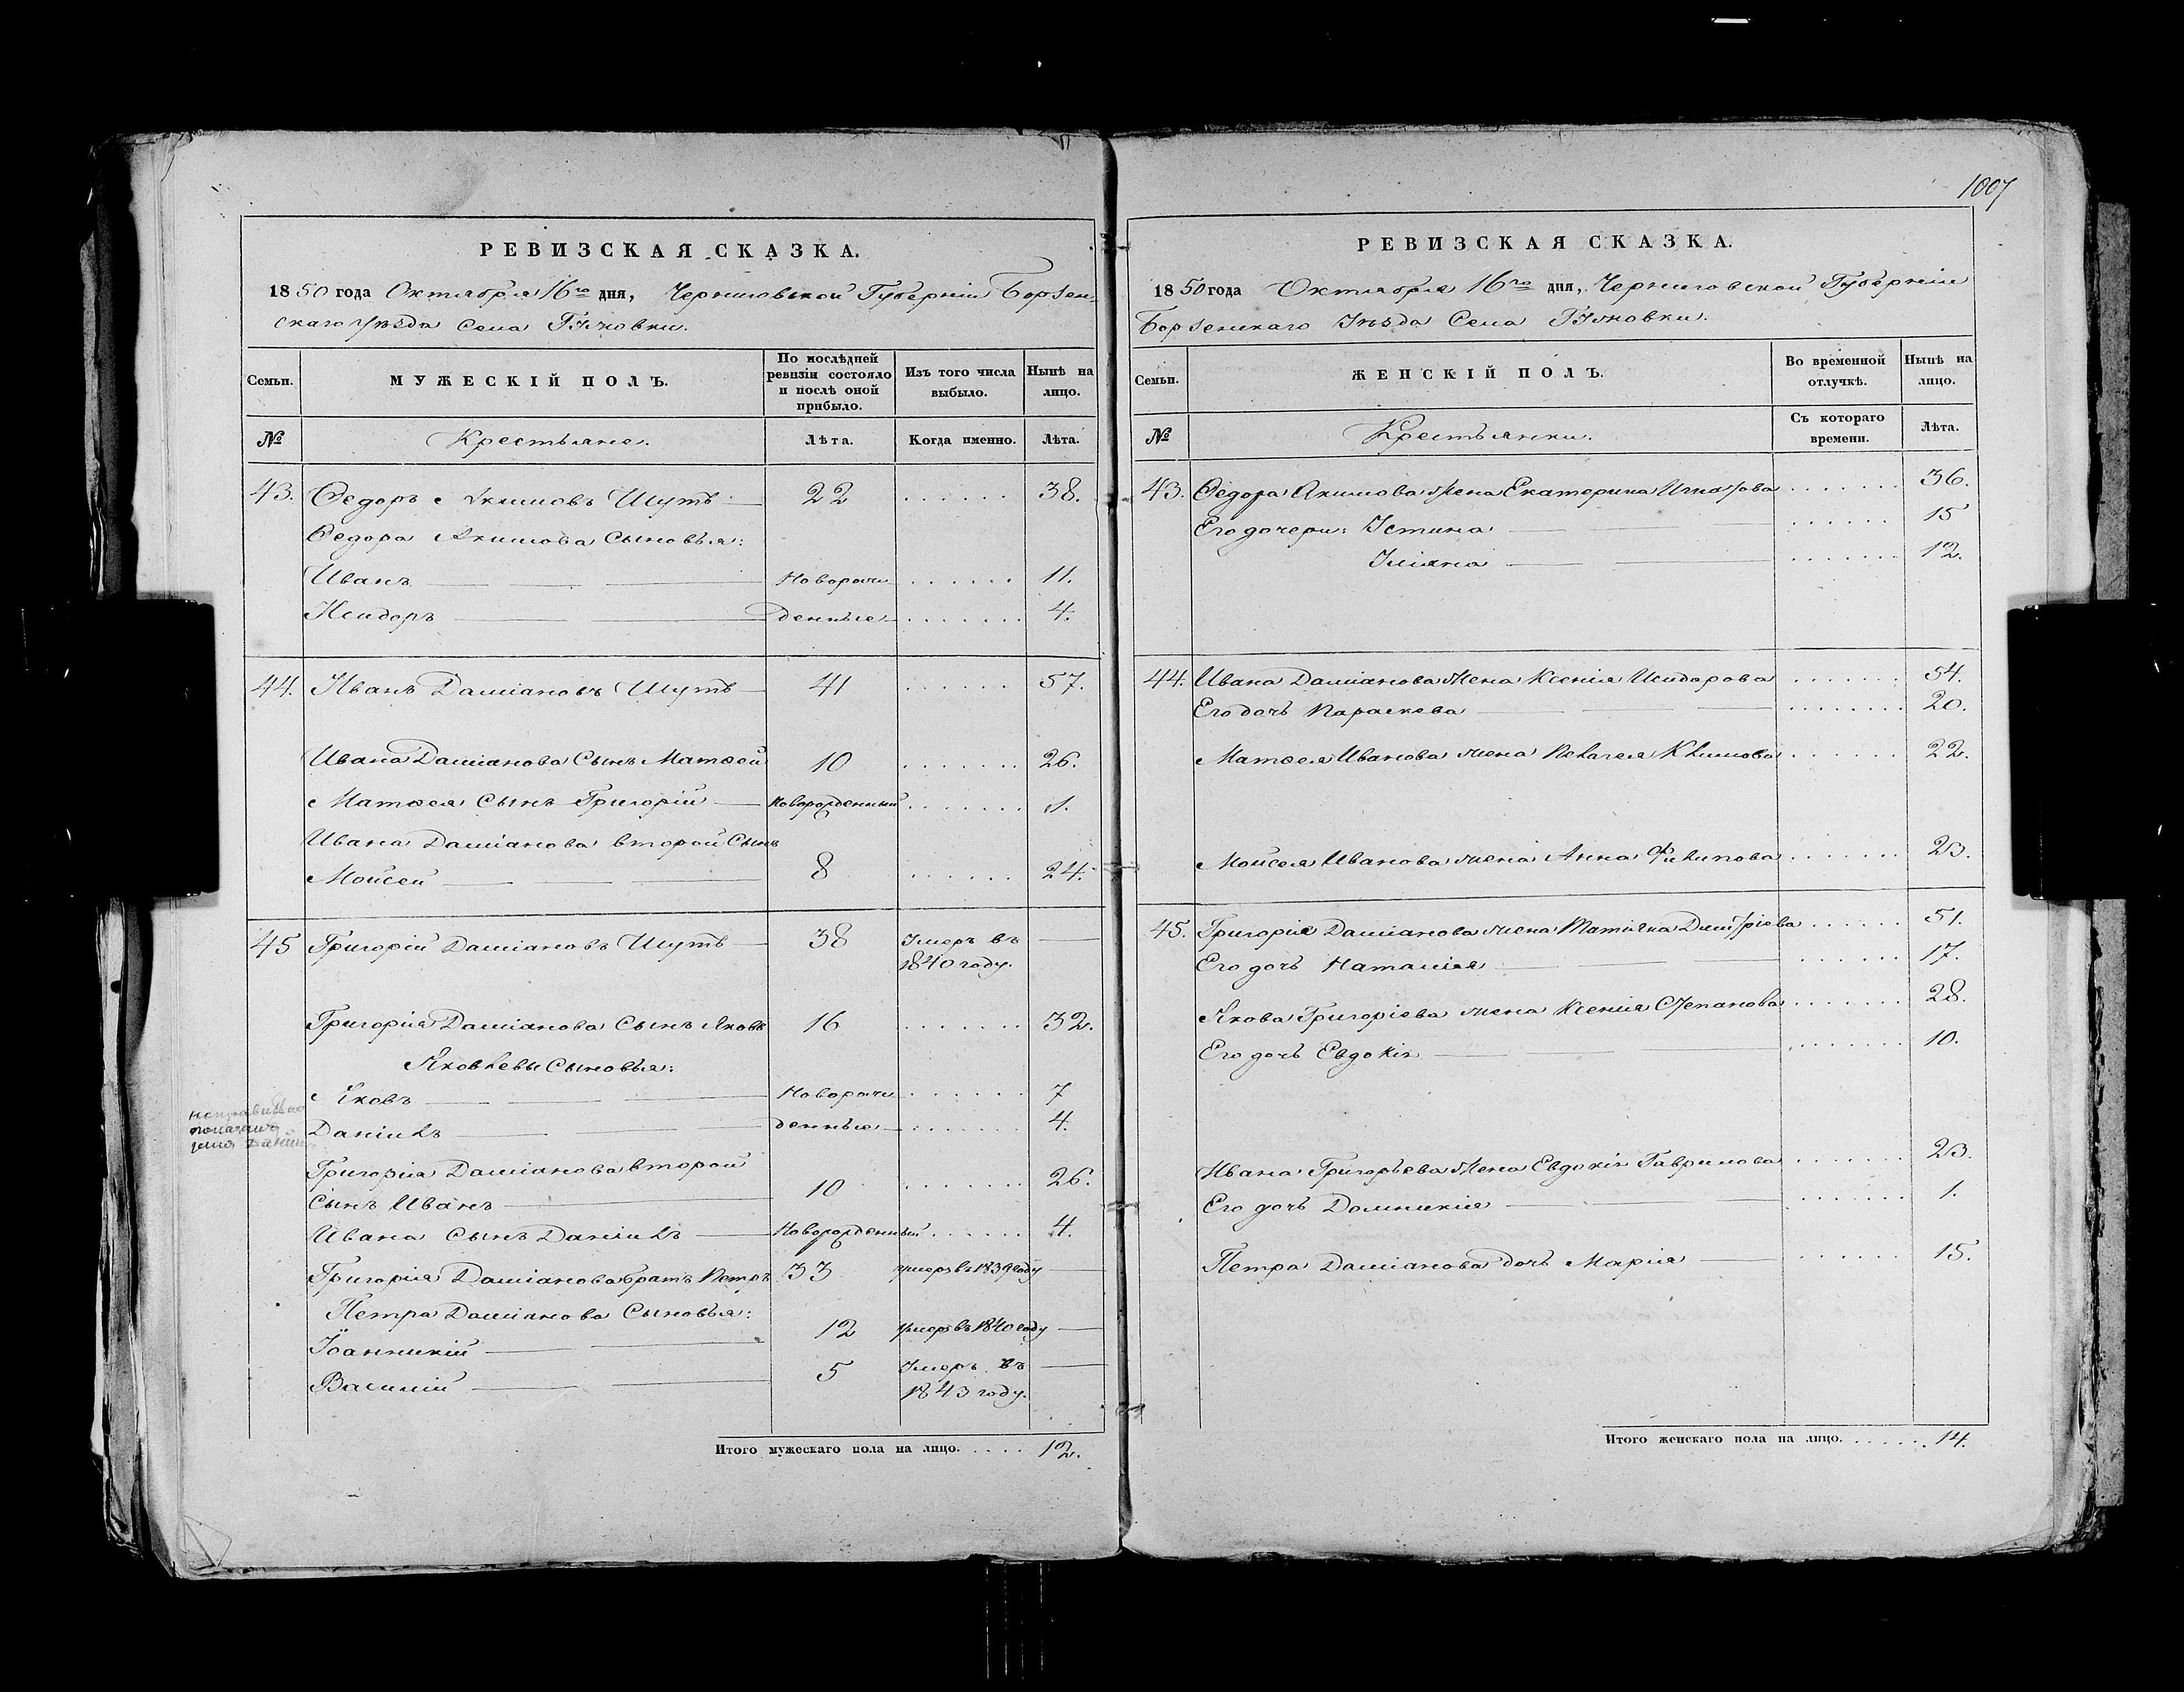 РЕВИЗСКАЯ СКАЗКА.
1850 года Октября 16го дня, Черниговской Губерніи Борзен-
скаго Уѣзда Села
Семьи.
МУЖЕСКІЙ ПОЛЪ.
По послѣдней ревизіи состояло и послѣ оной прибыло.
Изъ того числа выбыло.
Нынѣ на лицо.
№
Крестьяне.
Лѣта.
Когда именно.
Лѣта.
43. Ѳедоръ Якимовъ Шутъ 22 . . . . . . 38.
Ѳедора Якимова Сыновья:
Иванъ Новорож . . . . . . 11.
Исидоръ денные . . . . . . . 4.
44. Иванъ Даміановъ Шутъ 41 . . . . . . 57.
Ивана Даміанова Сынъ Матѳей 10 . . . . . . . 26.
Матѳея Сынъ Григорій Новорожденный . . . . . . . 1.
Ивана Даміанова второй Сынъ
Моисей 8 . . . . . . 24.
45 Григорій Даміановъ Шутъ 38 Умеръ въ
1840 году.
Григорія Даміанова Сынъ Яковъ 16 . . . . . . . 32.
Яковлевы Сыновья:
Яковъ Новорож . . . . . . . 7
Даніилъ денные . . . . . . . 4.
Григорія Даміанова второй
Сынъ Иванъ 10 . . . . . . . 26.
Ивана Сынъ Даніилъ Новорожденный . . . . . . 4.
Григорія Даміанова братъ Петръ 33 умеръ въ 1839 году
Петра Даміанова Сыновья:
Іоанникій 12 умеръ въ 1840 году
Василій 5 Умеръ въ
1843 году.
Итого мужескаго пола на лицо. . . . . 12.
1007
РЕВИЗСКАЯ СКАЗКА.
1850 года Октября 16го дня, Черниговской Губерніи
Борзенскаго Уѣзда Села
Семьи.
ЖЕНСКІЙ ПОЛЪ.
Во временной отлучкѣ.
Нынѣ на лицо.
№
Крестьянки.
Съ котораго времени.
Лѣта.
43. Ѳедора Якимова жена Екатерина Игнатова . . . . . . . 36.
Его дочери: Устина . . . . . . 15
Уліяна . . . . . . . 12.
44. Ивана Даміанова Жена Ксенія Исидорова . . . . . . . 54.
Его дочь Параскева . . . . . . . . 20.
Матѳея Иванова жена Пелагея Климова . . . . . . 22.
Моисея Иванова жена Анна Филипова . . . . . . . 23.
45. Григорія Даміанова жена Татіяна Дмитріева . . . . . . 51.
Его дочь Наталія . . . . . . 17.
Якова Григоріева жена Ксенія Степанова . . . . . . . 28.
Его дочь Евдокія . . . . . . . . 10.
Ивана Григорьева Жена Евдокія Гаврилова . . . . . . . 23.
Его дочь Домникія . . . . . . . 1.
Петра Даміанова дочь Марія . . . . . . 15.
Итого женскаго пола на лицо. . . . . . . 14.